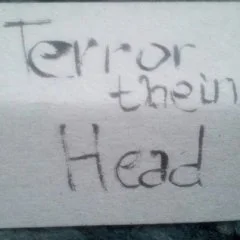 Terror
thein
Head